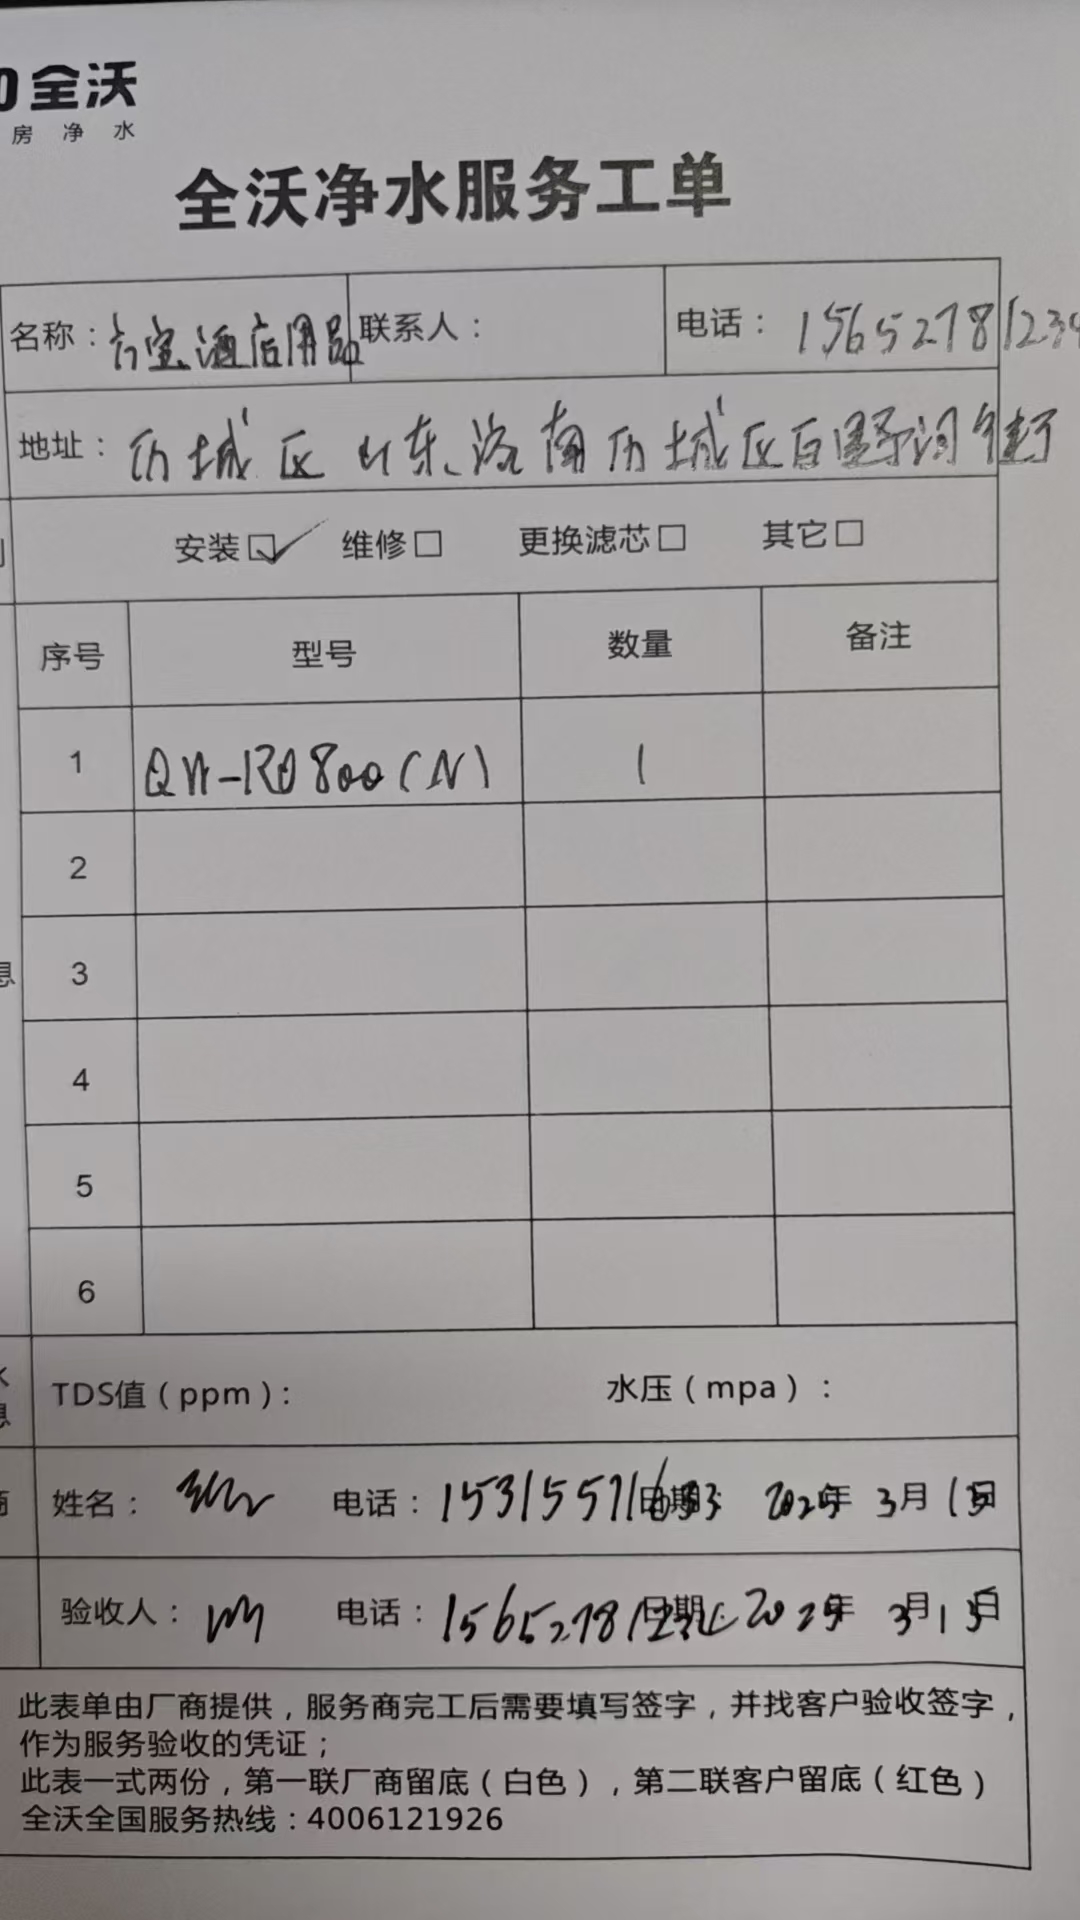 全沃
房净水
全沃净水服务工单
名称：六宝酒店用品 联系人： 电话：15652781234
地址：历城区山东济南历城区
安装☑ 维修□ 更换滤芯□ 其它□
序号 型号 数量 备注
1 QW-RO800(N) 1
2
息 3
4
5
6
TDS值（ppm）： 水压（mpa）：
息
商 姓名： 电话： 日期：2025年3月15日
验收人： 电话：15652781234 日期：2025年3月15日
此表单由厂商提供，服务商完工后需要填写签字，并找客户验收签字，
作为服务验收的凭证；
此表一式两份，第一联厂商留底（白色），第二联客户留底（红色）
全沃全国服务热线：4006121926